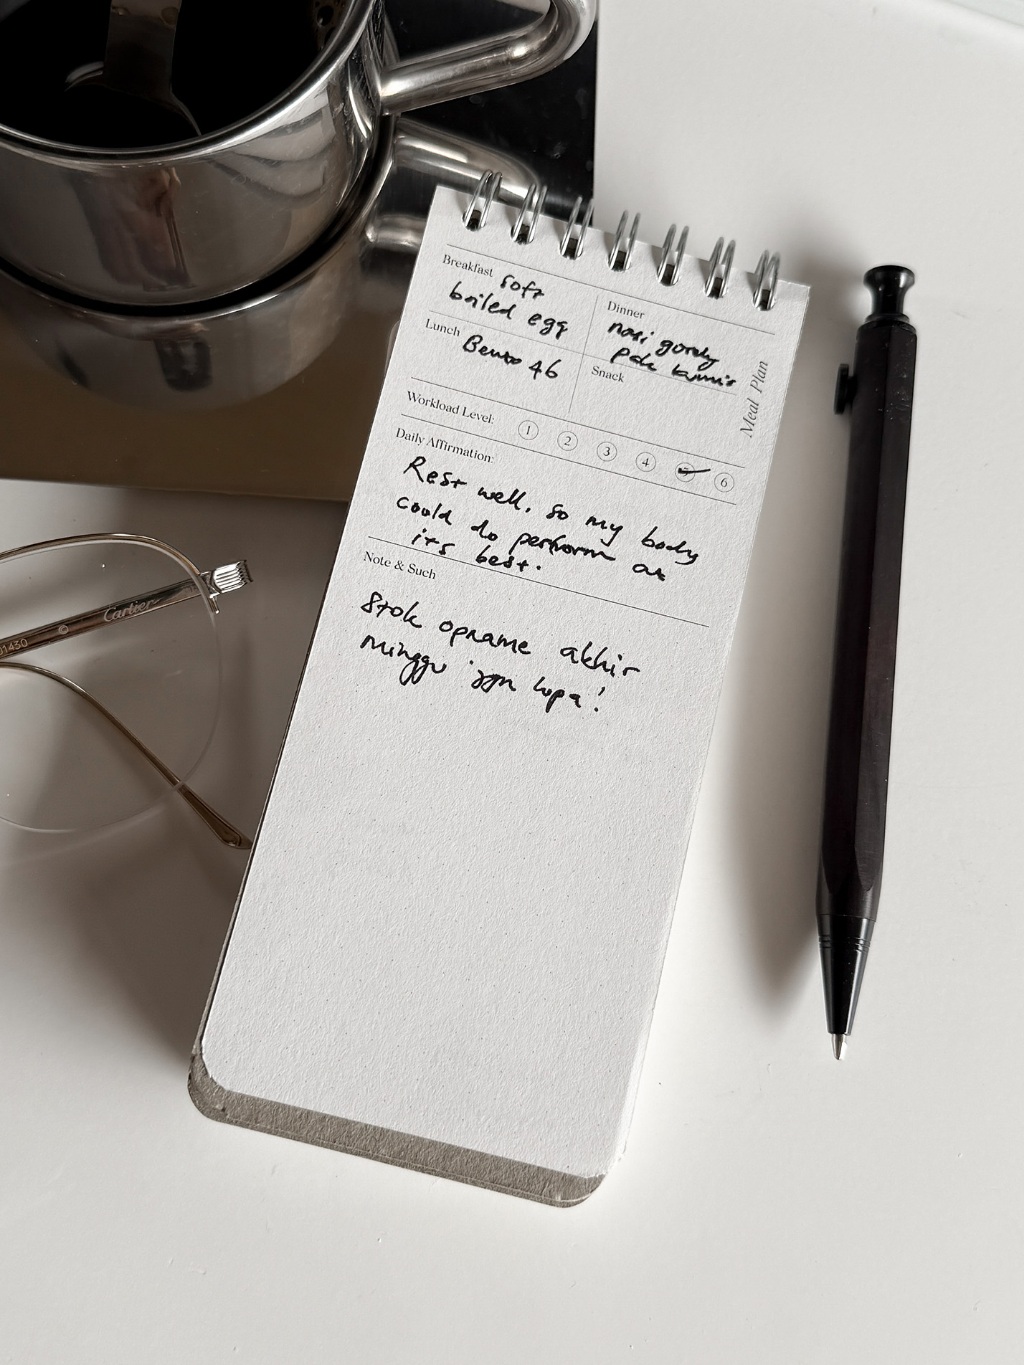 Breakfast soft
boiled egg
Lunch
Bento 46
Dinner
nasi goreng
pak kumis
Snack
Meal Plan
Workload Level:
1 2 3 4 6
Daily Affirmation:
Rest well, so my body
could do perform at
its best.
Note & Such
Stok opname akhir
minggu jgn lupa!
Cartier